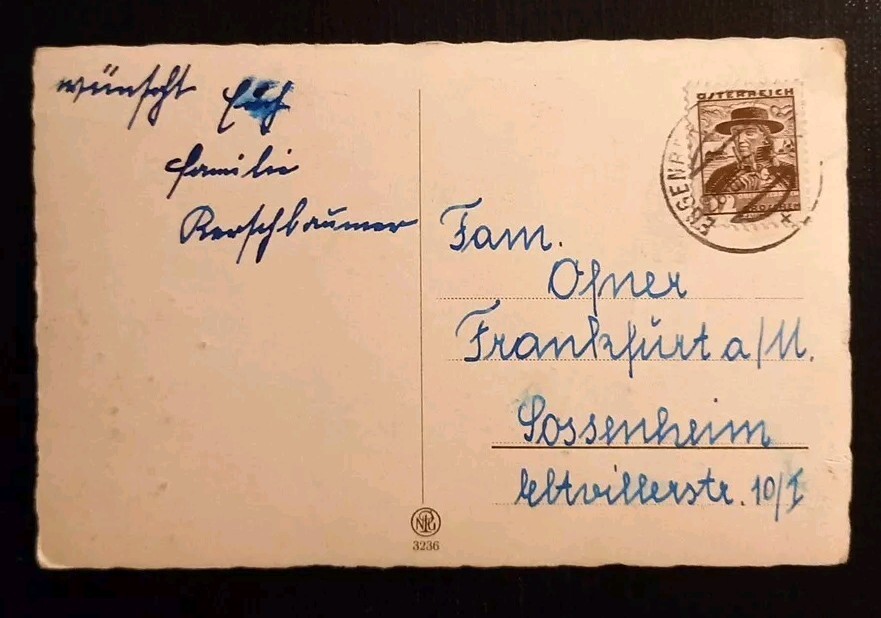 wünscht Euch
Familie
Kerschbaumer
ÖSTERREICH
Fam.
Ofner
Frankfurt a/M.
Sossenheim
Eltvillerstr. 10/I
3236